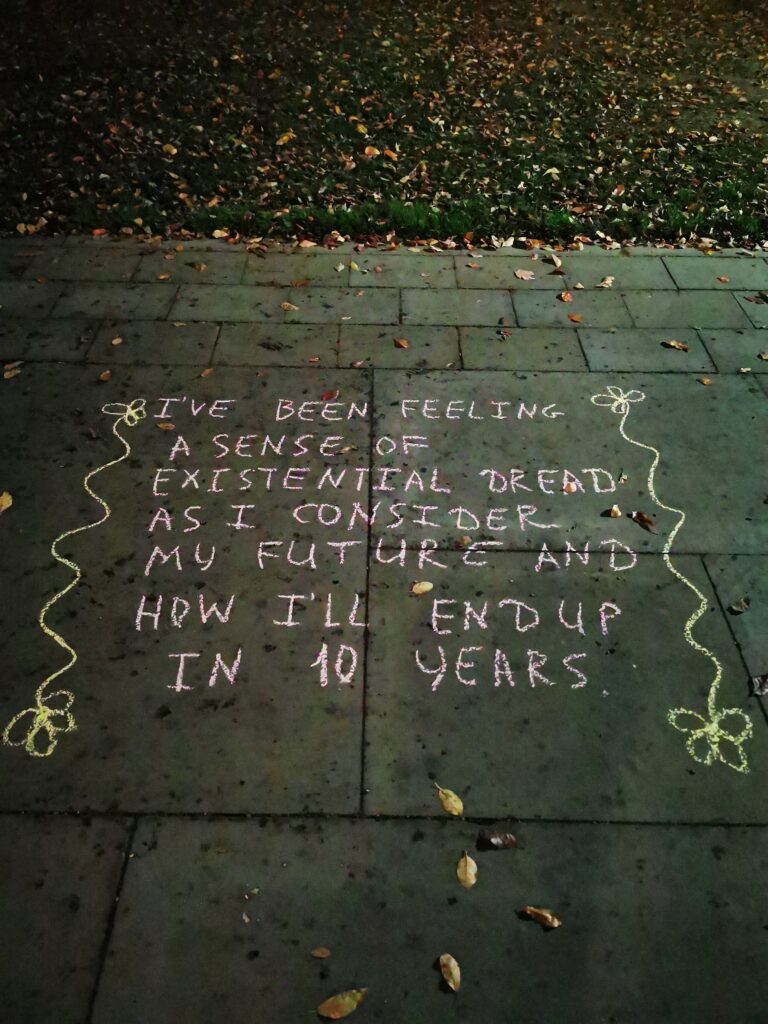 I'VE BEEN FEELING
A SENSE OF
EXISTENTIAL DREAD
AS I CONSIDER
MY FUTURE AND
HOW I'LL END UP
IN 10 YEARS.